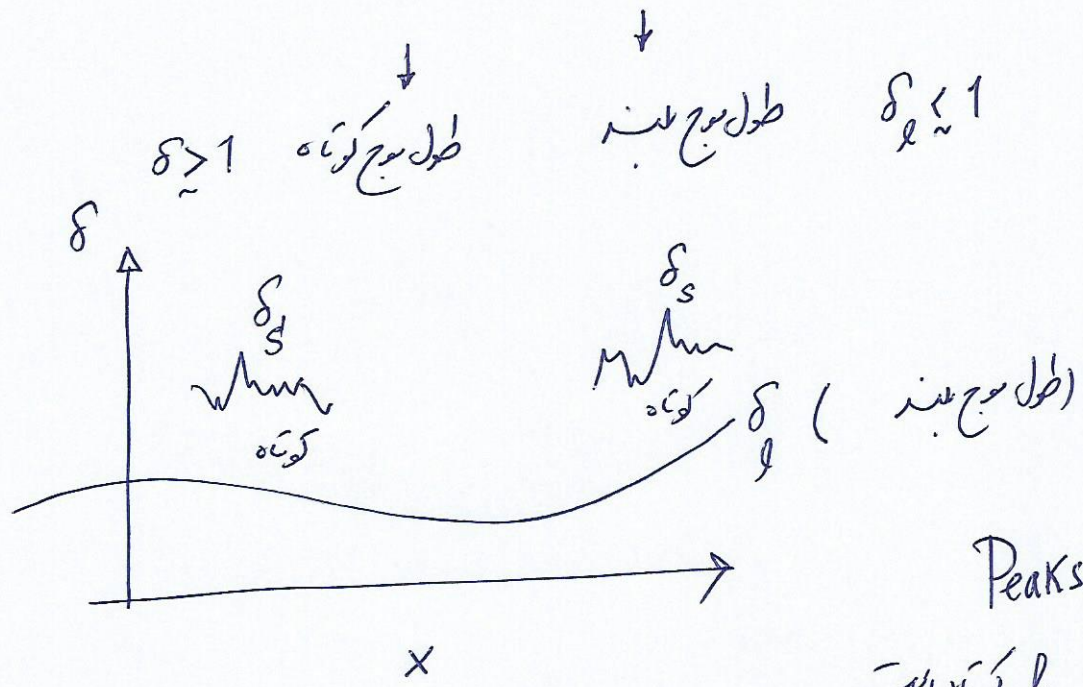 δ ≳ 1 طول موج کوتاه طول موج بلند δ_l ≲ 1
δ
δ_s
کوتاه
δ_s
کوتاه
δ_l (طول موج بلند)
Peaks
x